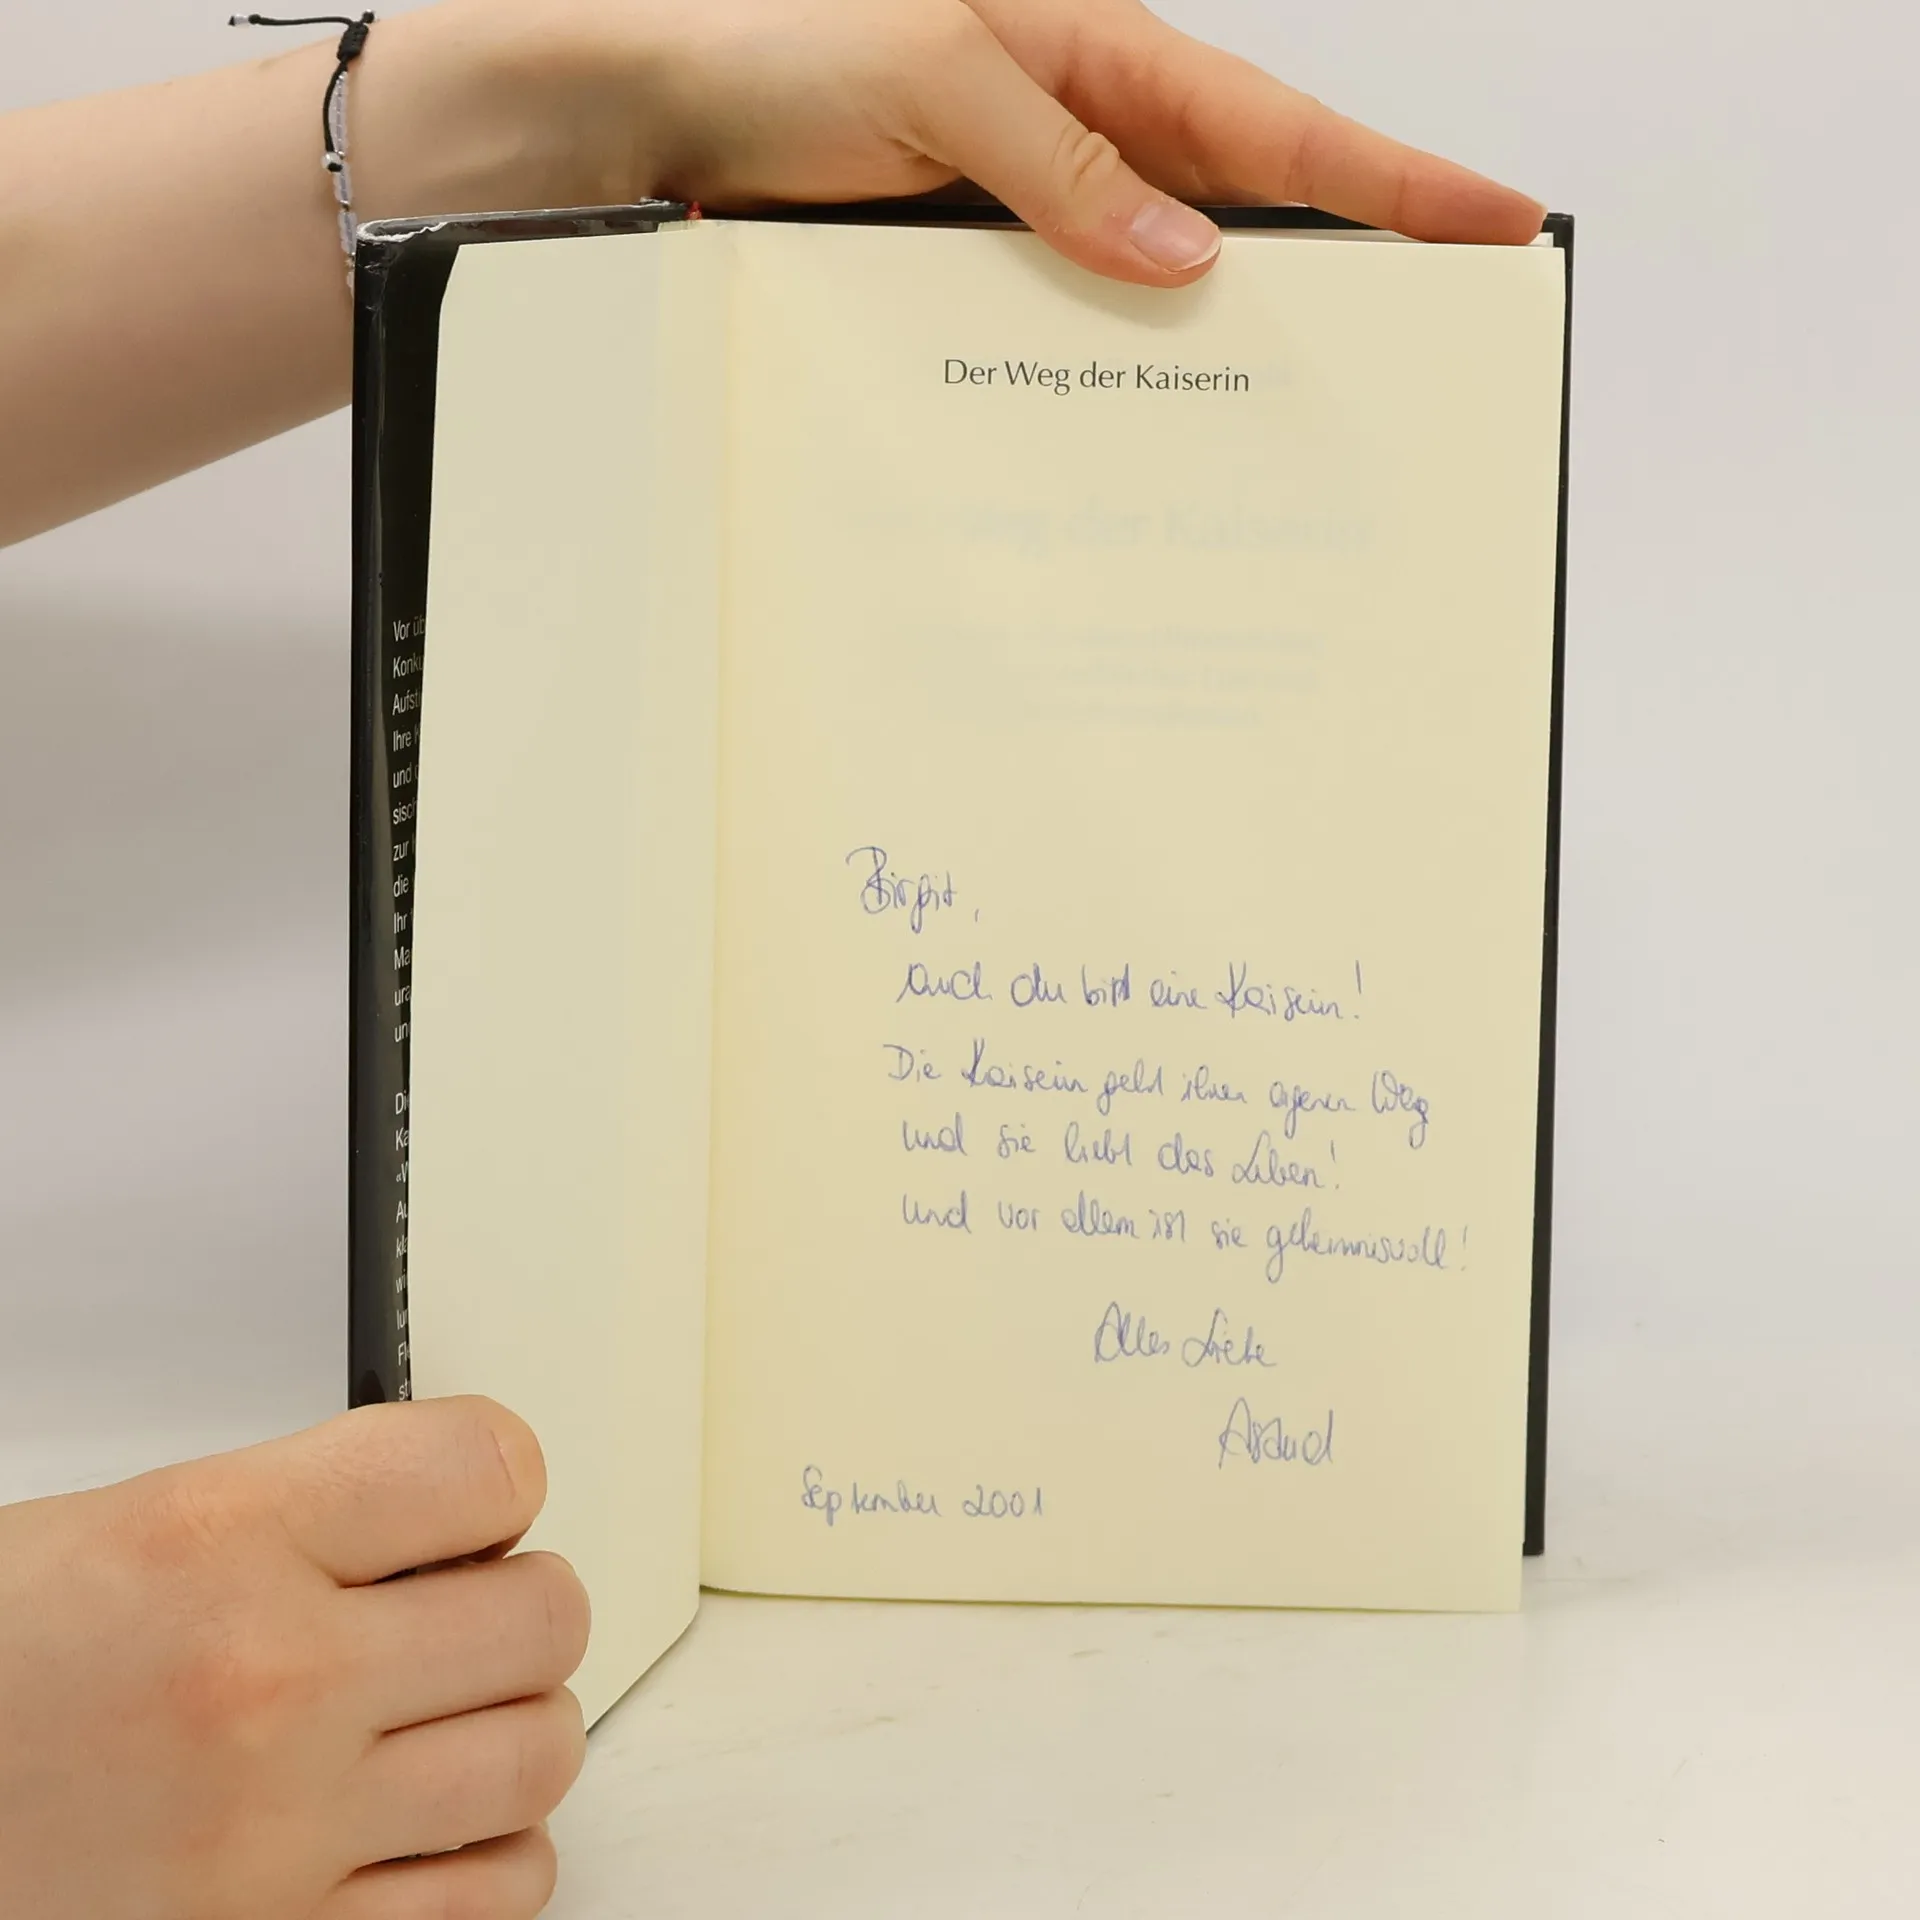 Der Weg der Kaiserin
Weg der Kaiserin
Vor üb
Konku
Aufst
Ihre K
und
sisch
zur
die
Ihr
Ma
ura
un
Di
Ka
«W
Au
kla
wi
lun
Fl
st
Birgit,
auch du bist eine Kaiserin!
Die Kaiserin geht ihren eigenen Weg
und sie liebt das Leben!
Und vor allem ist sie geheimnisvoll!
Alles Liebe
September 2001